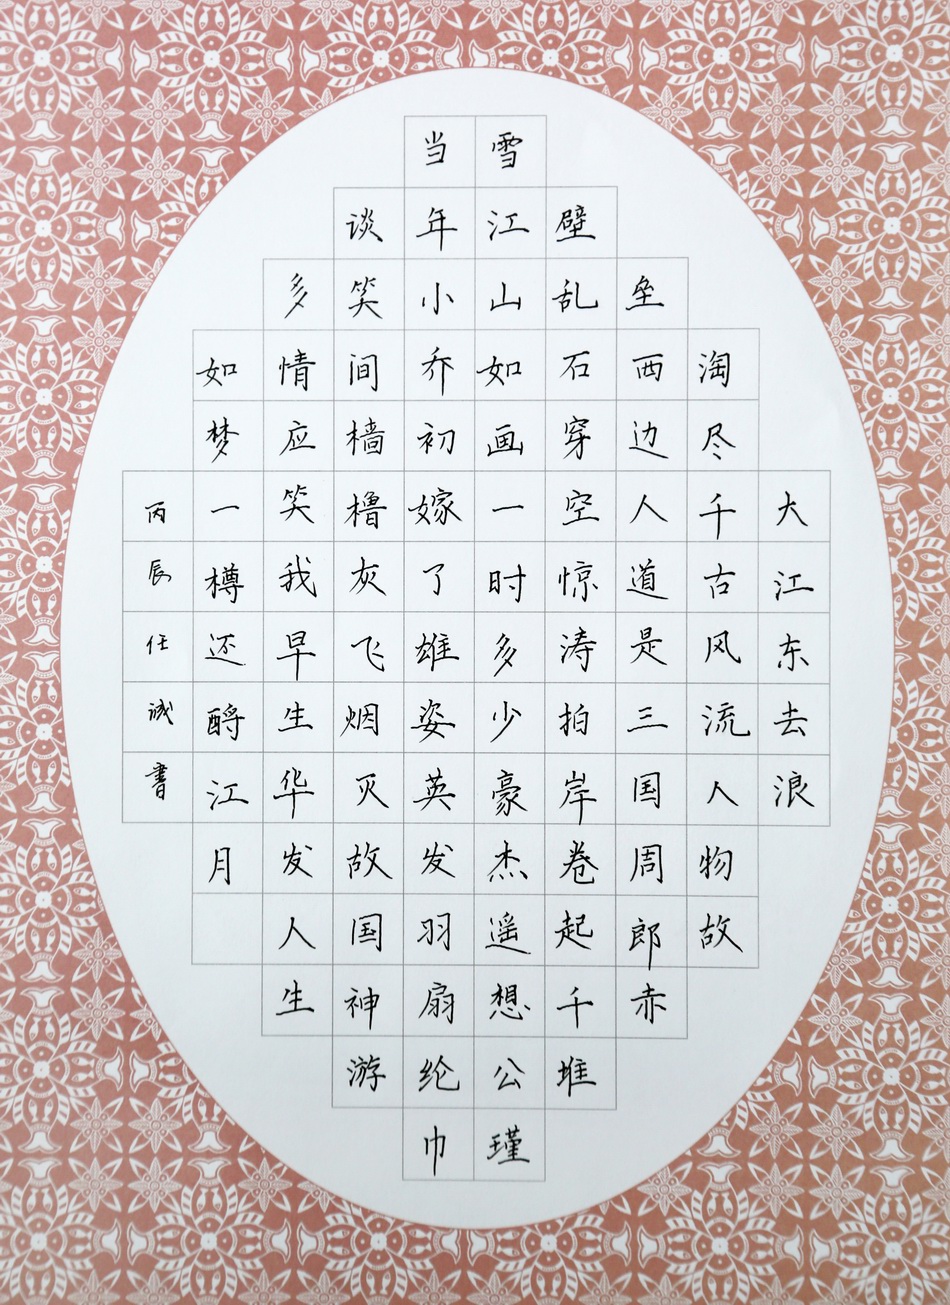 大江东去浪
淘尽千古风流人物故
垒西边人道是三国周郎赤
壁乱石穿空惊涛拍岸卷起千堆
雪江山如画一时多少豪杰遥想公瑾
当年小乔初嫁了雄姿英发羽扇纶巾
谈笑间樯橹灰飞烟灭故国神游
多情应笑我早生华发人生
如梦一樽还酹江月
丙辰任诚書